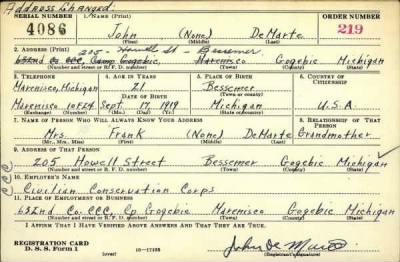 Address Changed:
SERIAL NUMBER 1. NAME (Print) ORDER NUMBER
4086 John (None) DeMarte 219
(First) (Middle) (Last)
2. ADDRESS (Print) 205- Howell St - Bessemer
632nd Co CCC, Camp Gogebic, Marenisco Gogebic Michigan
(Number and street or R. F. D. number) (Town) (County) (State)
3. TELEPHONE 4. AGE IN YEARS 5. PLACE OF BIRTH 6. COUNTRY OF CITIZENSHIP
Marenisco, Michigan 21 Bessemer
DATE OF BIRTH (Town or county)
Marenisco 10F24 Sept. 17, 1919 Michigan U.S.A.
(Exchange) (Number) (Mo.) (Day) (Yr.) (State or country)
7. NAME OF PERSON WHO WILL ALWAYS KNOW YOUR ADDRESS 8. RELATIONSHIP OF THAT PERSON
Mrs. Frank (None) DeMarte Grandmother
(Mr., Mrs., Miss) (First) (Middle) (Last)
9. ADDRESS OF THAT PERSON
205 Howell Street Bessemer Gogebic Michigan
(Number and street or R. F. D. number) (Town) (County) (State)
CCC
10. EMPLOYER'S NAME
Civilian Conservation Corps
11. PLACE OF EMPLOYMENT OR BUSINESS
632nd Co. CCC, Cp Gogebic Marenisco Gogebic Michigan
(Number and street or R. F. D. number) (Town) (County) (State)
I AFFIRM THAT I HAVE VERIFIED ABOVE ANSWERS AND THAT THEY ARE TRUE.
REGISTRATION CARD
D. S. S. Form 1 (over) 16-17105 John De Marte
(Registrant's signature)